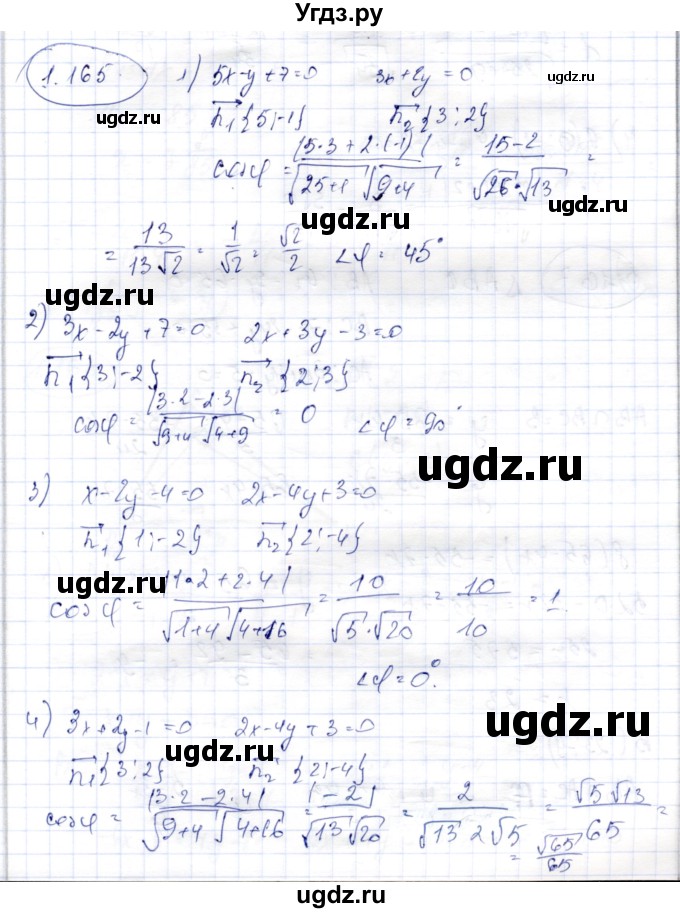 Угдз.ру
1.165. 1) 5x-y+7=0 3x+2y=0
ugdz.ru ugdz.ru
n₁{5;-1} n₂{3;2}
ugdz.ru
cosφ = |5·3+2·(-1)| / √25+1 √9+4 = 15-2 / √26·√13 =
= 13 / 13√2 = 1/√2 = √2/2 ∠φ = 45°
ugdz.ru
ugdz.ru
2) 3x-2y+7=0 2x+3y-3=0
n₁{3;-2} n₂{2;3}
cosφ = |3·2-2·3| / √9+4 √4+9 = 0 ∠φ=90°
ugdz.ru
ugdz.ru
3) x-2y-4=0 2x-4y+3=0
n₁{1;-2} n₂{2;-4}
ugdz.ru
cosφ = |1·2+2·4| / √1+4 √4+16 = 10 / √5·√20 = 10/10 = 1.
∠φ=0°.
ugdz.ru
4) 3x+2y-1=0 2x-4y+3=0
ugdz.ru
n₁{3;2} n₂{2;-4}
cosφ = |3·2-2·4| / √9+4 √4+16 = |-2| / √13 √20 = 2 / √13 2√5 = √5 √13 / 65 =
= √65/65
ugdz.ru
ugdz.ru